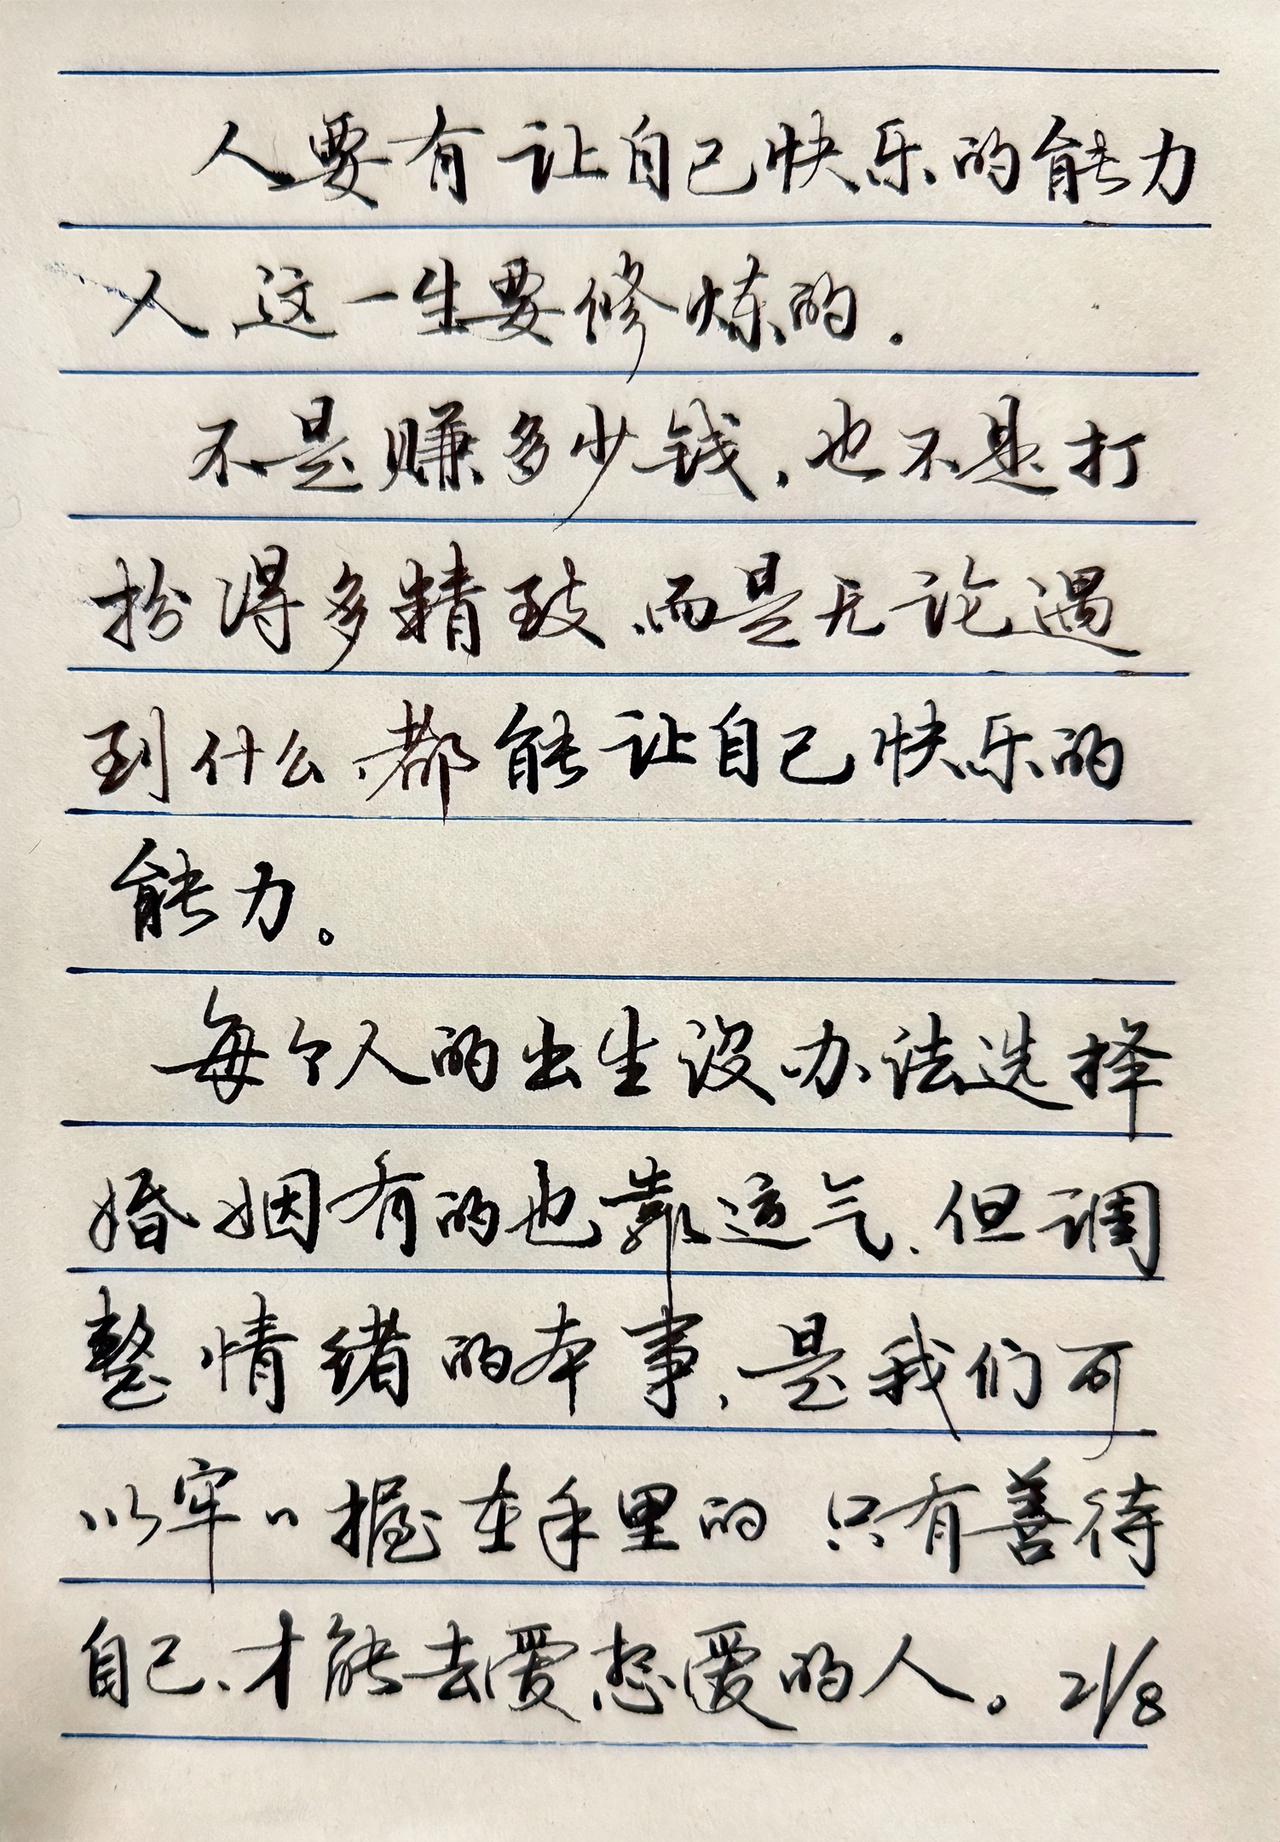 人要有让自己快乐的能力
人这一生要修炼的.
不是赚多少钱,也不是打
扮得多精致、而是无论遇
到什么、都能让自己快乐的
能力。
每个人的出生没办法选择
婚姻有的也靠运气、但调
整情绪的本事,是我们可
以牢々握在手里的 只有善待
自己、才能去爱想爱的人。21/8